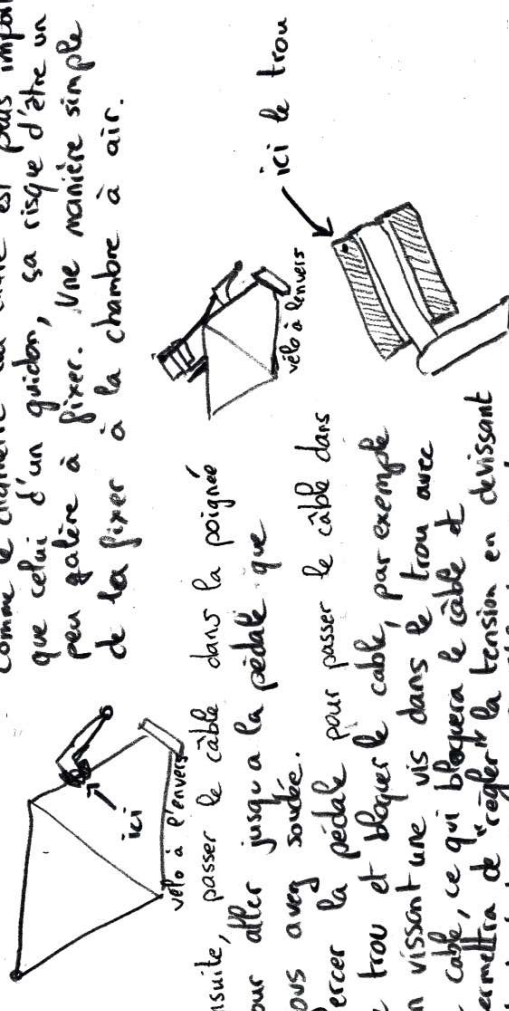 comme le diamètre du cadre est plus
que celui d'un guidon, ça risque d'être un
peu galère à fixer. Une manière simple
de la fixer à la chambre à air.
ici
vélo à l'envers
vélo à l'envers
ici le trou
passer le câble dans la poignée
aller jusqu'a la pédale que
avez soudée.
la pédale pour passer le câble dans
trou et bloquer le cable, par exemple
vissant une vis dans le trou avec
cable, ce qui bloquera le câble et
de "régler" la tension en devissant